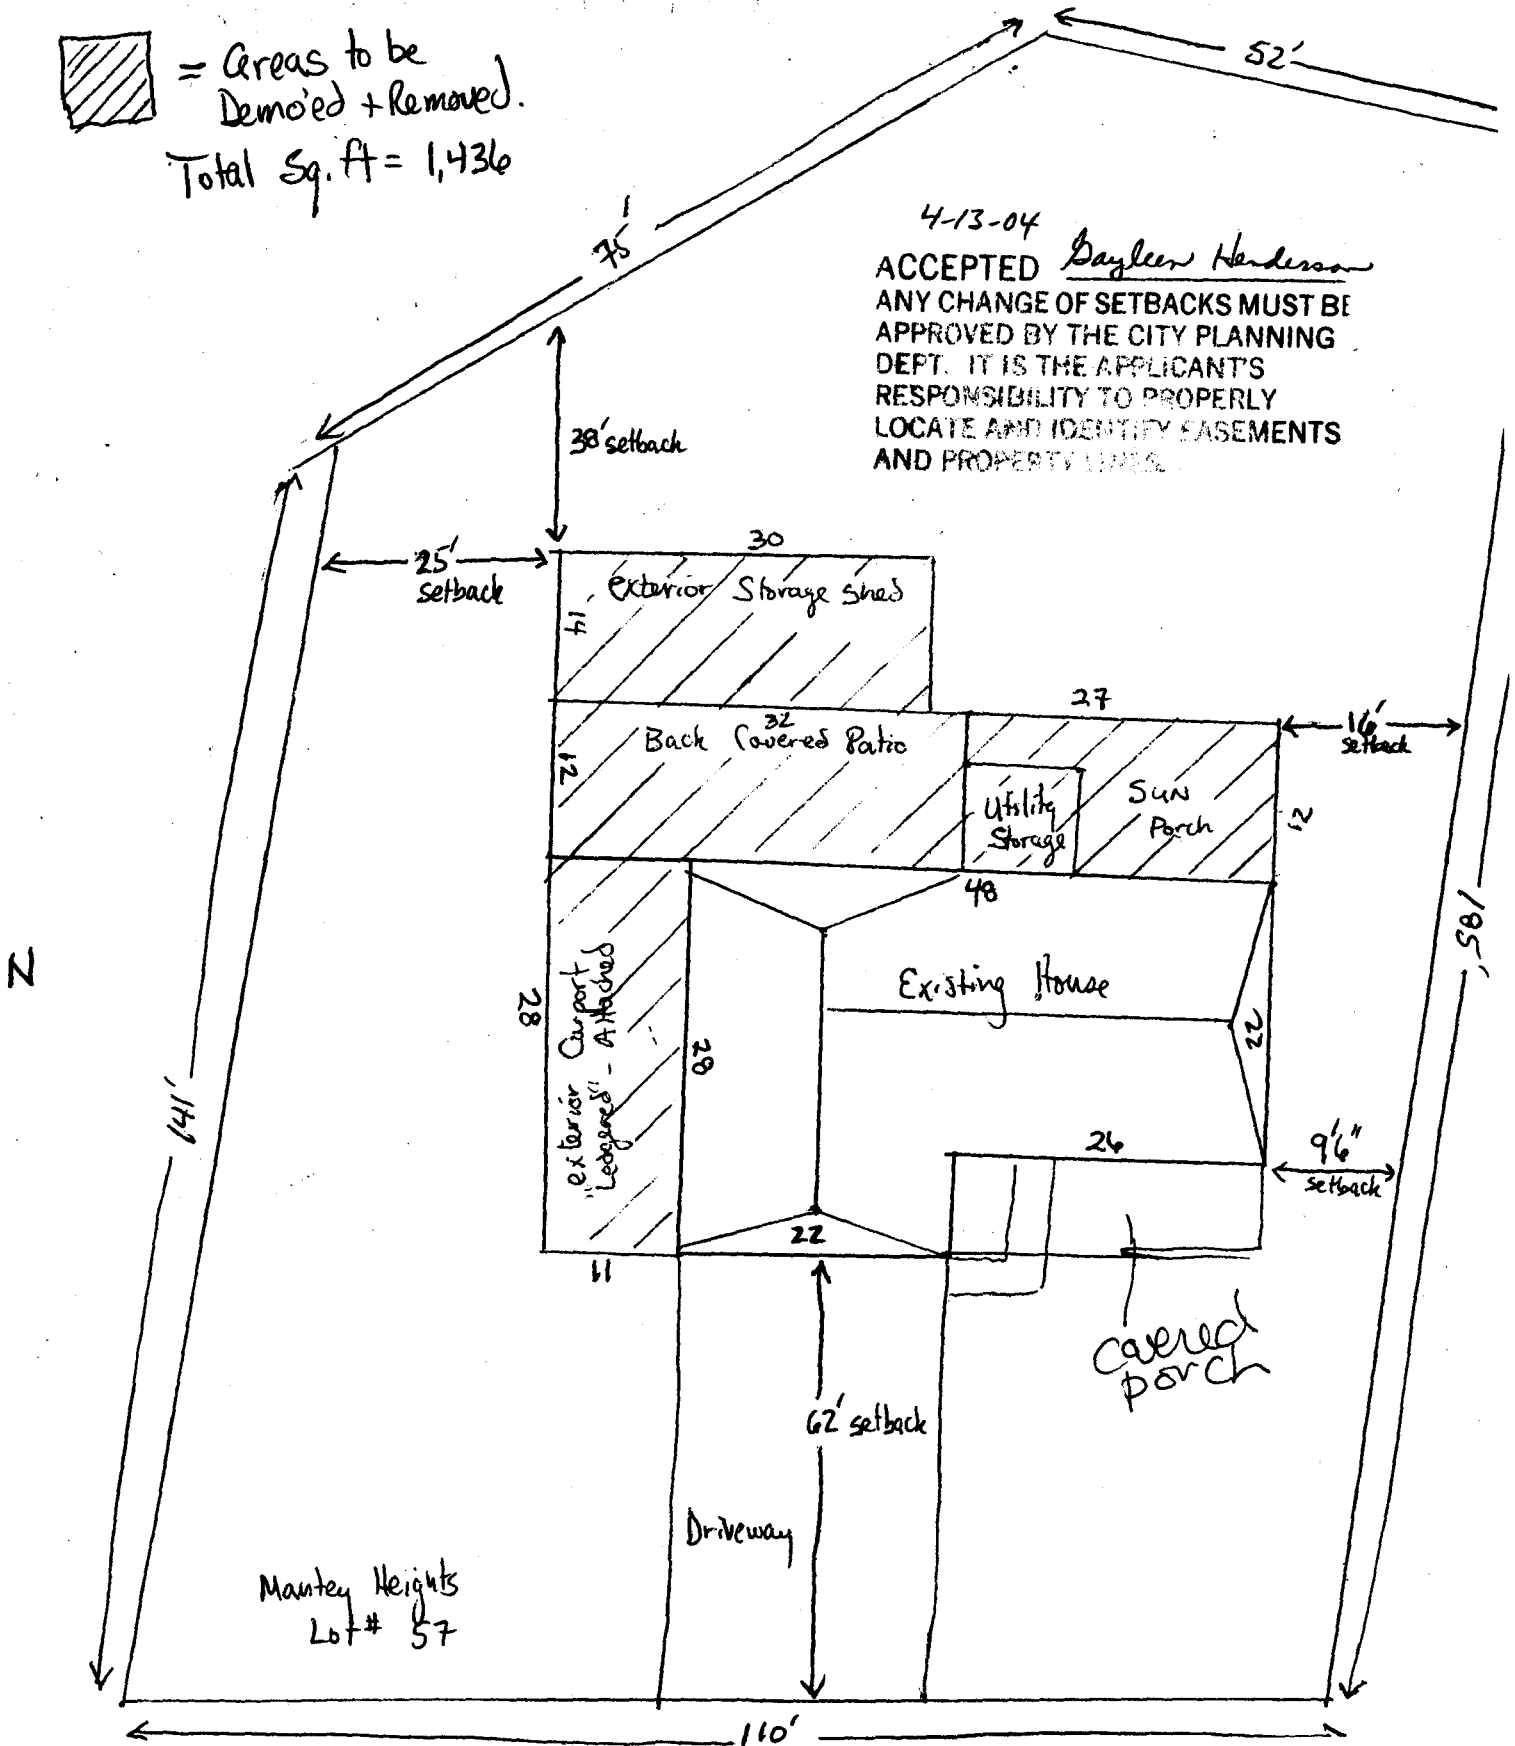 = Areas to be
Demo'ed + Removed.
Total Sq. ft = 1,436
52'
75'
4-13-04
ACCEPTED Gayleen Henderson
ANY CHANGE OF SETBACKS MUST BE
APPROVED BY THE CITY PLANNING
DEPT. IT IS THE APPLICANT'S
RESPONSIBILITY TO PROPERLY
LOCATE AND IDENTIFY EASEMENTS
AND PROPERTY LINES.
38' setback
25'
setback
30
exterior Storage shed
14
27
32
Back Covered Patio
12
16'
setback
Utility
Storage
SUN
Porch
12
48
185'
N
Existing House
exterior Carport
"Ledgered" - Attached
28
28
22
141'
26
9'6"
setback
22
11
covered
porch
62' setback
Driveway
Mantey Heights
Lot # 57
110'